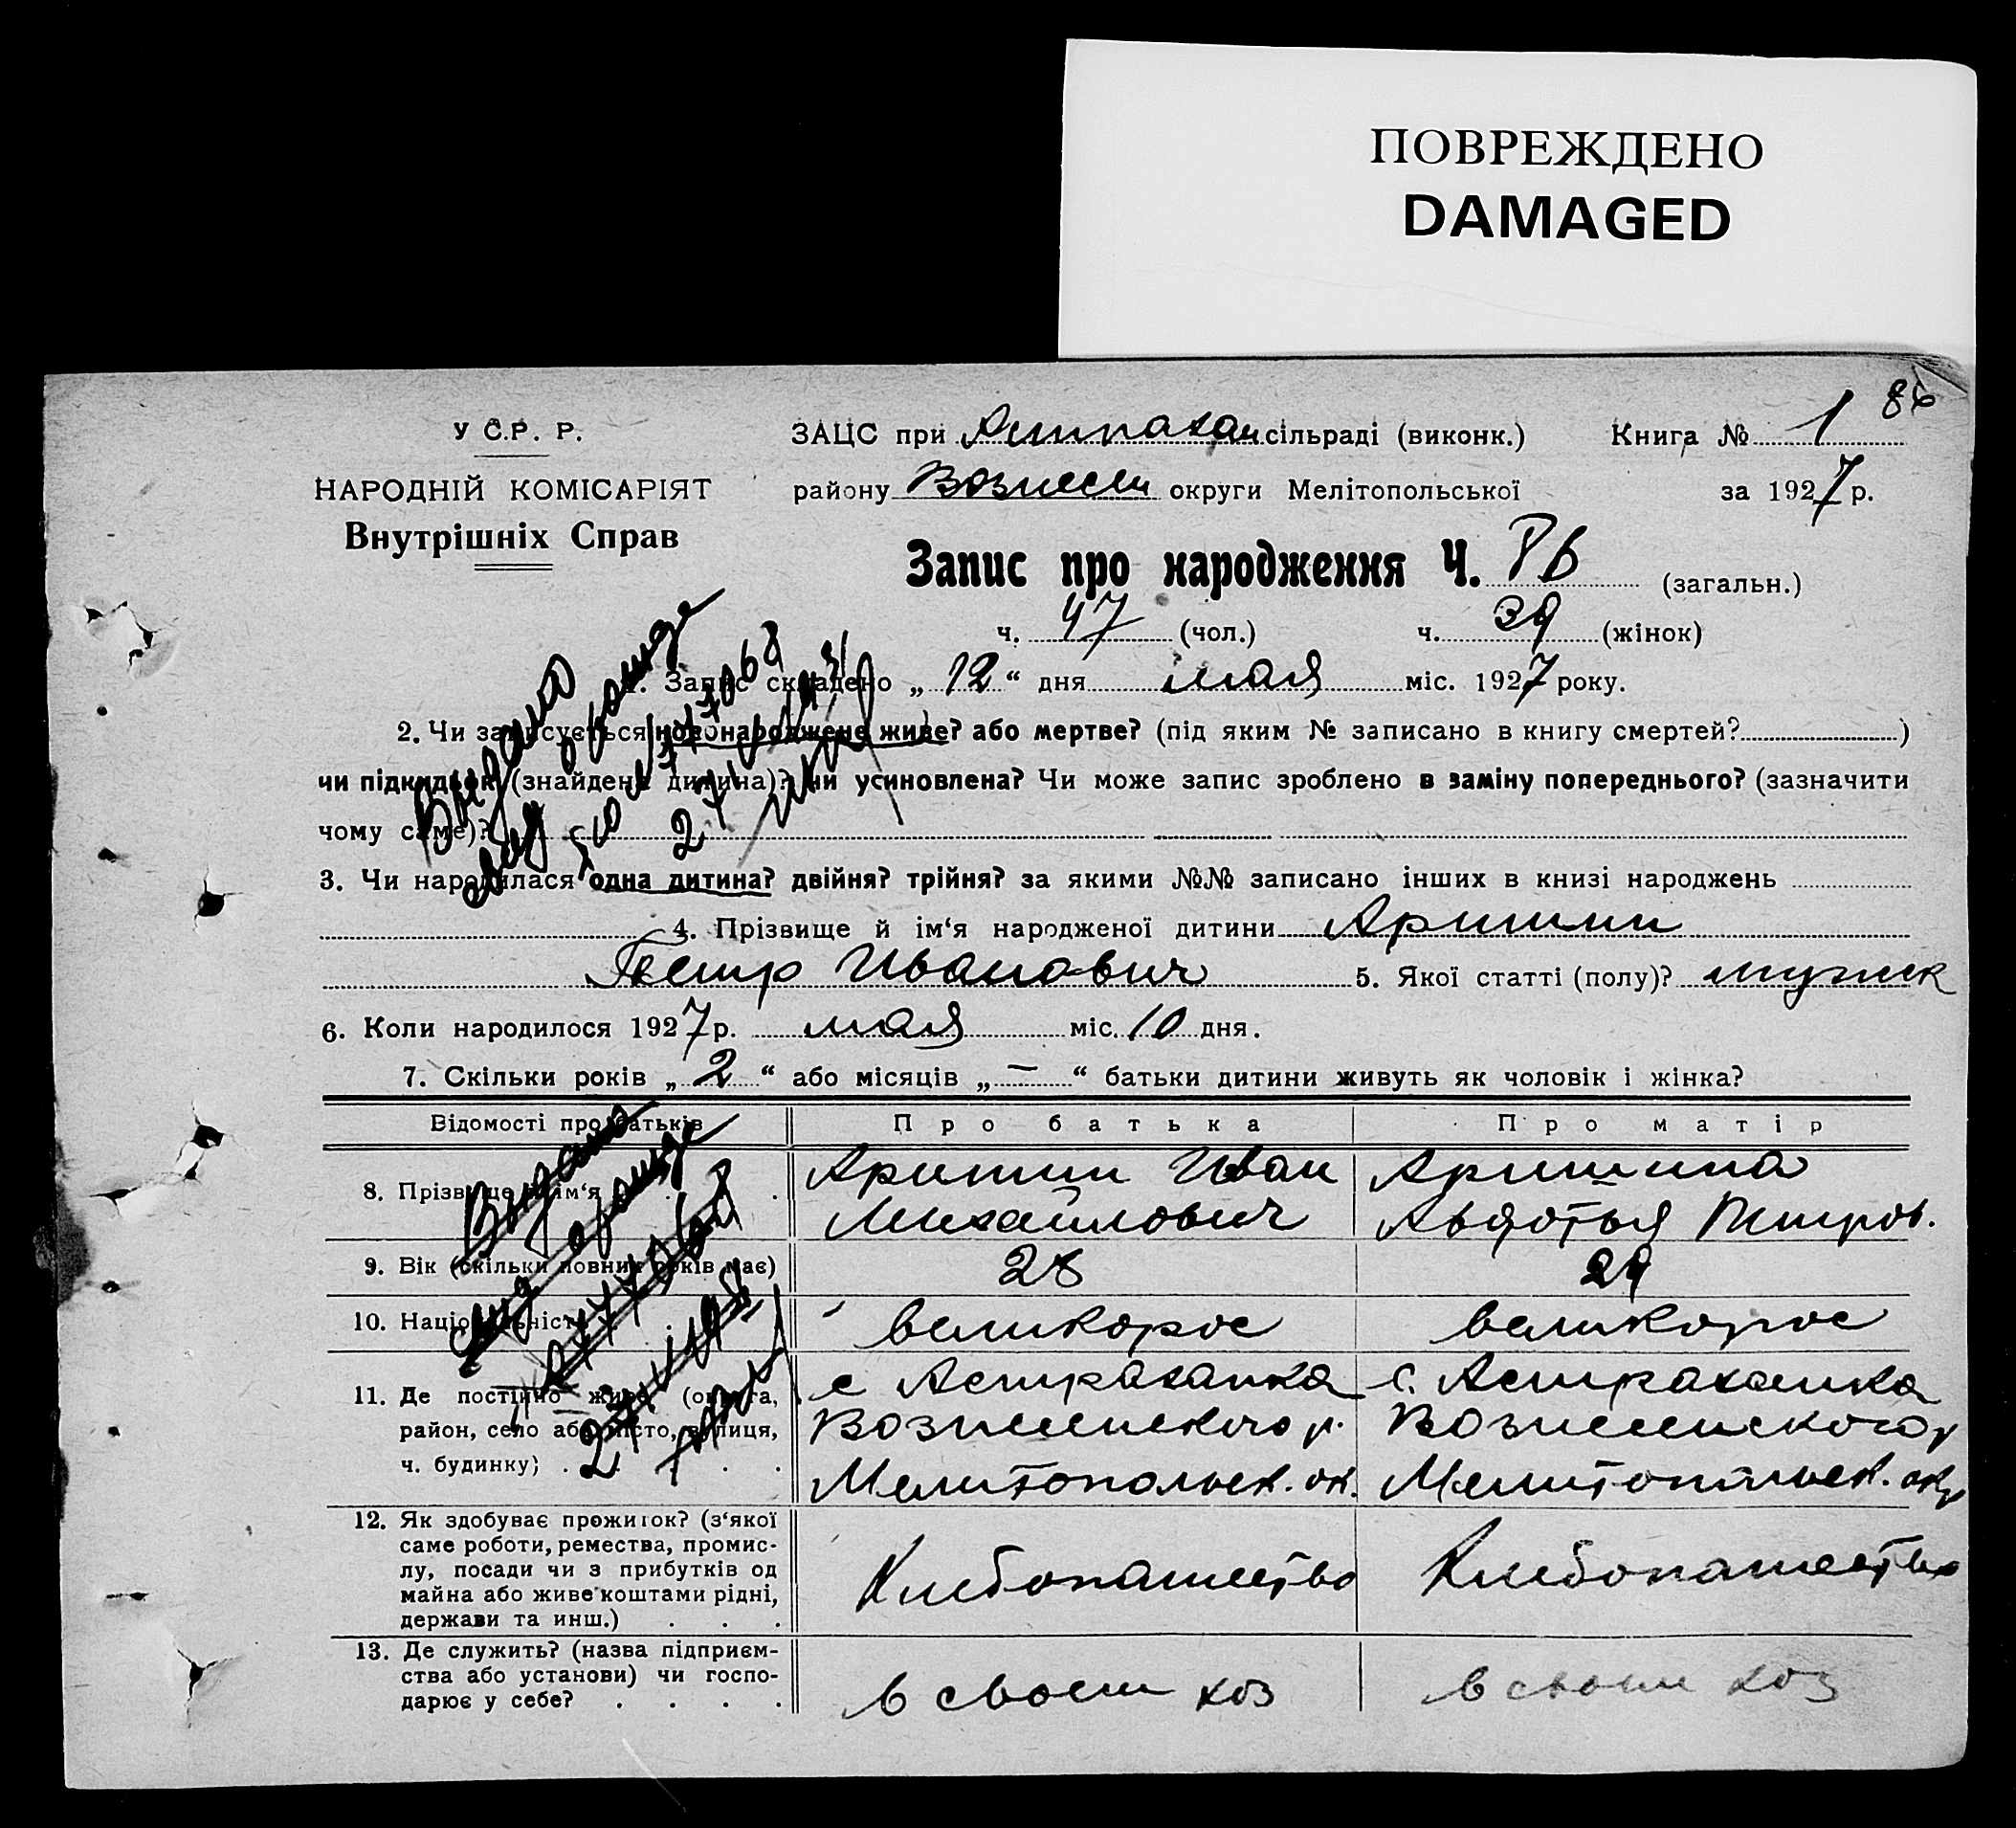 ПОВРЕЖДЕНО
DAMAGED
86
У С.Р. Р.
НАРОДНІЙ КОМІСАРІЯТ
Внутрішніх Справ
ЗАЦС при Астрахан сільраді (виконк.) Книга № 1
району Вознесен округи Мелітопольської за 1927 р.
Запис про народження Ч. 86 (загальн.)
ч. 47 (чол.) ч. 39 (жінок)
1. Запис складено „12“ дня мая міс. 1927 року.
2. Чи записується новонароджене живе? або мертве? (під яким № записано в книгу смертей? )
чи підкидьок (знайдена дитина)? чи усиновлена? Чи може запис зроблено в заміну попереднього? (зазначити
чому саме)?
Выдано
2
3. Чи народилася одна дитина? двійня? трійня? за якими №№ записано інших в книзі народжень
4. Прізвище й ім‘я народженої дитини Аришин
Петр Иванович 5. Якої статті (полу)? мужск
6. Коли народилося 1927 р. мая міс. 10 дня.
7. Скільки років „2“ або місяців „—“ батьки дитини живуть як чоловік і жінка?
Відомості про батьків Про батька Про матір
8. Прізвище й ім‘я . . Аришин Иван Аришина
Михайлович Авдотья Петров.
9. Вік (скільки повних років має) 28 29
10. Національність . . великорос великорос
11. Де постійно живе (округа, с Астраханка с. Астраханка
район, село або місто, вулиця, Вознесенского р. Вознесенского р
ч. будинку) . . . . . Мелитопольск. ок. Мелитопольск. окр
Выдано
12. Як здобуває прожиток? (з‘якої
саме роботи, ремества, промис-
лу, посади чи з прибутків од
майна або живе коштами рідні,
держави та инш.) . . .
Хлебопашество Хлебопашество
13. Де служить? (назва підприєм-
ства або установи) чи госпо-
дарює у себе? . . . .
в своем хоз в своем хоз